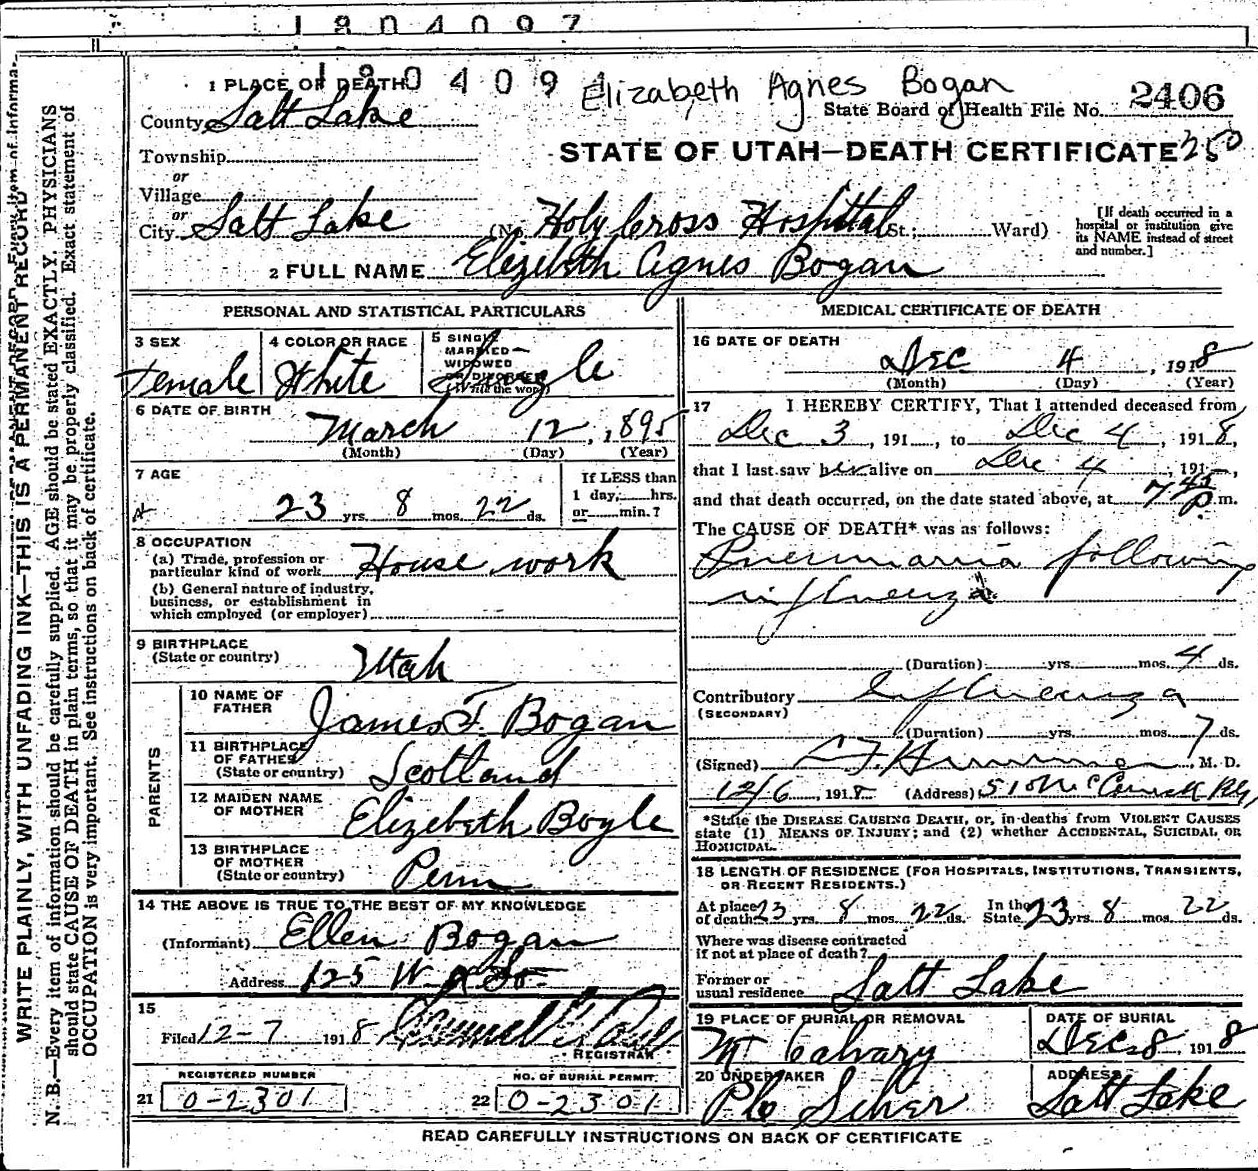 1804097
1 PLACE OF DEATH 180409
Elizabeth Agnes Bogan
State Board of Health File No. 2406
County Salt Lake
STATE OF UTAH—DEATH CERTIFICATE 350
Township
or
Village
or
City Salt Lake (No. Holy Cross Hospital St.; Ward)
[If death occurred in a
hospital or institution give
its NAME instead of street
and number.]
2 FULL NAME Elizebeth Agnes Bogan
PERSONAL AND STATISTICAL PARTICULARS
3 SEX Female
4 COLOR OR RACE White
5 SINGLE
MARRIED
WIDOWED
OR DIVORCED
(Write the word)
Single
6 DATE OF BIRTH
March 12, 1895
(Month) (Day) (Year)
7 AGE
23 yrs. 8 mos. 22 ds.
If LESS than
1 day, hrs.
or min.?
8 OCCUPATION
(a) Trade, profession or
particular kind of work House work
(b) General nature of industry,
business, or establishment in
which employed (or employer)
9 BIRTHPLACE
(State or country) Utah
PARENTS
10 NAME OF
FATHER James F. Bogan
11 BIRTHPLACE
OF FATHER
(State or country) Scotland
12 MAIDEN NAME
OF MOTHER Elizebeth Boyle
13 BIRTHPLACE
OF MOTHER
(State or country) Penn
14 THE ABOVE IS TRUE TO THE BEST OF MY KNOWLEDGE
(Informant) Ellen Bogan
Address 125 W So
15
Filed 12-7 1918
REGISTRAR
REGISTERED NUMBER
21 0-2301
NO. OF BURIAL PERMIT
22 0-2301
MEDICAL CERTIFICATE OF DEATH
16 DATE OF DEATH
Dec 4, 1918
(Month) (Day) (Year)
17 I HEREBY CERTIFY, That I attended deceased from
Dec 3, 191, to Dec 4, 1918,
that I last saw her alive on Dec 4, 191,
and that death occurred, on the date stated above, at 7 45 p m.
The CAUSE OF DEATH* was as follows:
Pneumania following
influenza
(Duration) yrs. mos. 4 ds.
Contributory Influenza
(SECONDARY)
(Duration) yrs. mos. 7 ds.
(Signed) M. D.
12/6, 1918 (Address) 510
*State the DISEASE CAUSING DEATH, or, in deaths from VIOLENT CAUSES
state (1) MEANS OF INJURY; and (2) whether ACCIDENTAL, SUICIDAL OR
HOMICIDAL.
18 LENGTH OF RESIDENCE (FOR HOSPITALS, INSTITUTIONS, TRANSIENTS,
OR RECENT RESIDENTS.)
At place
of death 23 yrs. 8 mos. 22 ds. In the State 23 yrs. 8 mos. 22 ds.
Where was disease contracted
if not at place of death?
Former or
usual residence Salt Lake
19 PLACE OF BURIAL OR REMOVAL
Mt Calvary
DATE OF BURIAL
Dec 8, 1918
20 UNDERTAKER
ADDRESS
Salt Lake
READ CAREFULLY INSTRUCTIONS ON BACK OF CERTIFICATE
WRITE PLAINLY, WITH UNFADING INK—THIS IS A PERMANENT RECORD
N. B.—Every item of information should be carefully supplied. AGE should be stated EXACTLY. PHYSICIANS
should state CAUSE OF DEATH in plain terms, so that it may be properly classified. Exact statement of
OCCUPATION is very important. See instructions on back of certificate.